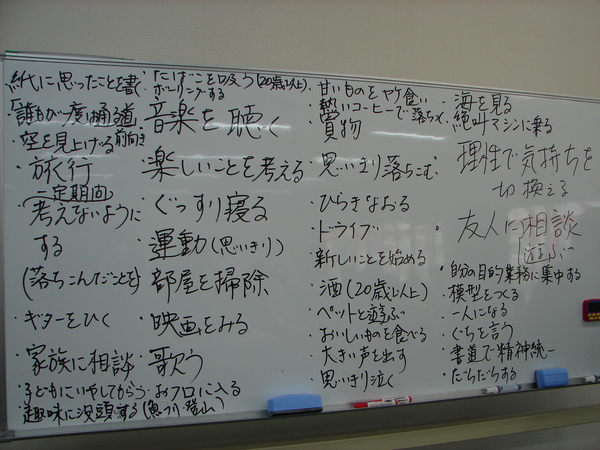 ・紙に思ったことを書く
・「誰もが一度は通る道」
・空を見上げる 前向き
・旅行
(一定期間)
・考えないように
する
(落ちこんだことを)
・ギターをひく
・家族に相談
・子どもにいやしてもらう
・趣味に没頭する(魚つり・登山)
・たばこを吸う(20歳以上)
・ボーリングする
・音楽を聴く
・楽しいことを考える
・ぐっすり寝る
・運動(思いきり)
・部屋を掃除
・映画をみる
・歌う
・おフロに入る
・甘いものをヤケ食い
・熱いコーヒーで落ちつく
・買物
・思いきり落ちこむ
・ひらきなおる
・ドライブ
・新しいことを始める
・酒(20歳以上)
・ペットと遊ぶ
・おいしいものを食べる
・大きい声を出す
・思いきり泣く
・海を見る
・絶叫マシンに乗る
・理性で気持ちを
切換える
・友人に相談
遊ぶ
・自分の目的業務に集中する
・模型をつくる
・一人になる
・ぐちを言う
・書道で精神統一
・だらだらする